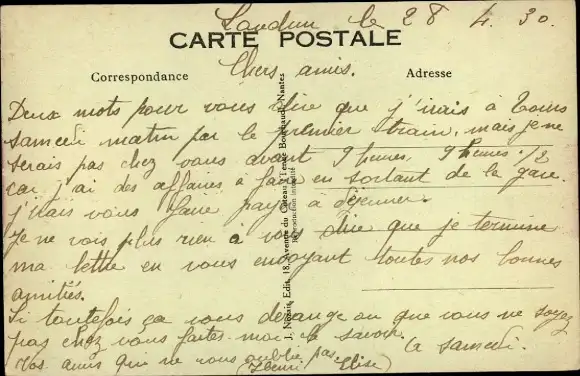 Loudun le 28 4. 30.
CARTE POSTALE
Correspondance
Chers amis.
Adresse
Deux mots pour vous dire que j'irais à Tours
samedi matin par le premier train, mais je ne
serais pas chez vous avant 9 heures, 9 heures 1/2
car j'ai des affaires à faire en sortant de la gare.
j'irais vous faire payer à déjeuner.
Je ne vois plus rien a vous dire que je termine
ma lettre en vous envoyant toutes nos bonnes
amitiés.
Si toutefois ça vous dérange ou que vous ne soyez
pas chez vous faites-moi le savoir.
a samedi.
Vos amis qui ne vous oublie pas
(Henri Elise)
J. Nozais, Edit, 18, Avenue du Côteau (Tenue Bouchaud) Nantes
Reproduction interdite